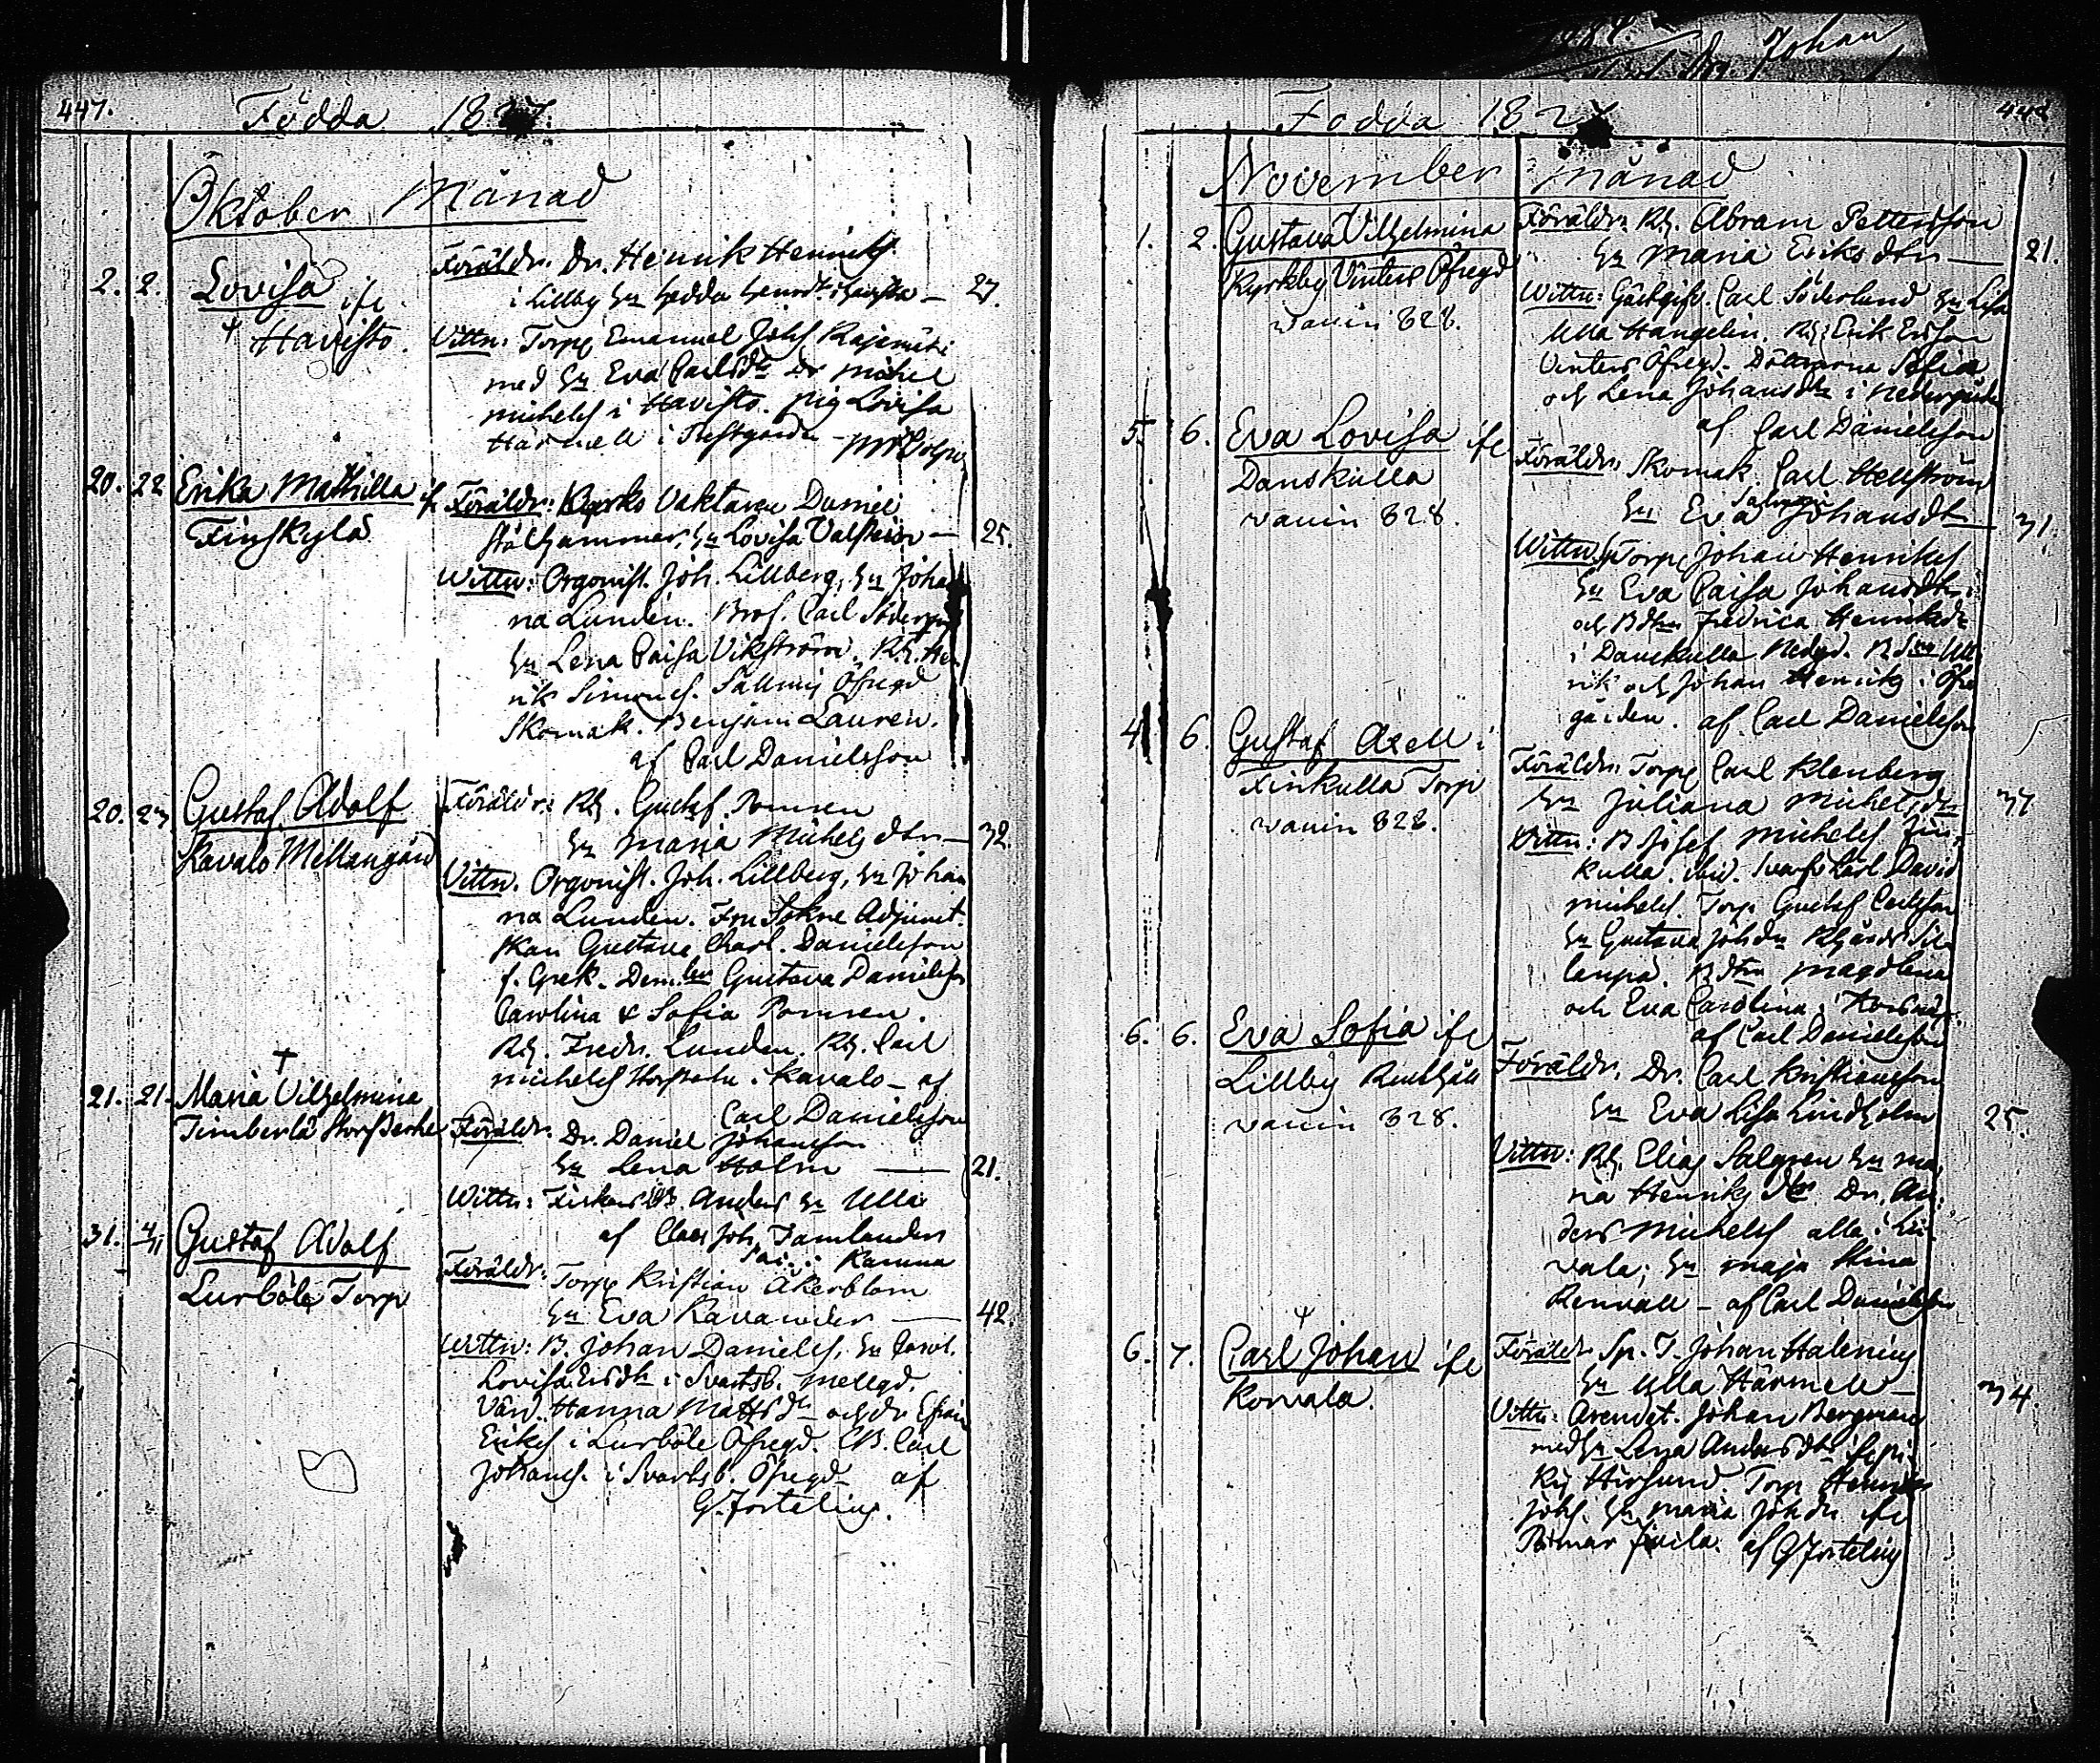 447.
Födda 1827.
Oktober Månad
2. 2. Lovisa ife
Havisto.
Föräldr. Dr. Henrik Henriks.
i Lillby hu Hedda 27.
Vittn: Torp Emanuel Johs Rajamäki
med hu Eva Carlsdr Dr Michel
Michels i Havisto. pig Lovisa
Härmell i
20. 22 Erika Mathilla if
Finskylä
Föräldr: Kyrko Vaktaren Daniel
Stålhammar, hu Lovisa 25.
Wittn: Orgonist. Joh. Lillberg, hu Joha
na Lunden. Prof. Carl
hu Lena Caisa Vikström. Rh. He
rik Simons. Sällvik Öfregd
Skomak. Benjam Lauren.
af Carl Danielsson
20. 23 Gustaf Adolf
Kavalo Mellangård
Föräldr: Rh. Gustaf Pomren
hu Maria Michels dtr 32.
Vittn. Orgonist. Joh. Lillberg, hu Johan
na Lunden. Fru Sokne Adjunct.
skan Gustava Charl. Danielsson
f. Grek. Dem.len Gustava Danielsson
Carolina & Sofia Pomren.
Rh. Fredr. Lunden. Rh. Carl
Michels i Kavalo - af
Carl Danielsson
†
21. 21. Maria Vilhelmina
Timberlä
Föräldr. Dr. Daniel Johansson
hu Lena Holm 21.
Wittn: Anders hu Ulla
af Claes Joh. Tamlander
Kamma
31. 4/11 Gustaf Adolf
Lurböle Torp
Föräldr: Torp Kristian Åkerblom
hu Eva Ravander 42.
Wittn: B. Johan Daniels. hu Carol.
Lovisa Ersdtr i Svartsb. Mellgd.
Värd. Hanna Mattsdr och dr Efraim
Eriks i Lurböle Öfregd. B. Carl
Johans. i Svartsb. Öfregd af
G. Forteling.
Johan
448
Födda 1827
November Månad
1. 2. Gustava Vilhelmina
Kyrkby Vinters Öfregd
vaccin 828.
Föräldr: Rh. Abram Petterson
hu Maria Eriks dtr 21.
Wittn: Gästgifv. Carl Söderlund hu Lisa
Ulla Hangelin. Rh. Erik Ersson
Vinters Öfregd. Döttrarna Sofia
och Lena Johansdtr i Nedergården
af Carl Danielsson
5. 6. Eva Lovisa ife
Danskulla
vaccin 828.
Föräldr. Skomak. Carl Hellström
hu Eva Johansdtr 31.
Wittn. Torp Johan Henriks
hu Eva Caisa Johansdtr
och Bdtrn Fredrica Henriksdr
i Danskulla Nedgd. Bdsn Ul
rik och Johan Henriks i Öfre
gården. af Carl Danielsson
4 6. Gustaf Axell i
Finkulla Torp
vaccin 828.
Föräldr. Torp Carl Klenberg
hu Juliana Michelsdtr 37
Vittn: B Josef Michels Fin
kulla. ibid. Carl David
Michels. Torp Gustaf Carlsson
hu Gustava Johdr
lempä. Bdtrn Magdlena
och Eva Carolina i
af Carl Danielsson
6. 6. Eva Sofia ife
Lillby
vaccin 828.
Föräldr. Dr. Carl Kristiansson
hu Eva Lisa Lindholm 25.
Vittn: Rh. Elias Salgren hu Ma
ria Henriks dtr Dr. An
ders Michels alla i Lu
vala; hu Maja Stina
Renvall - af Carl Danielsson
6. 7. Carl Johan ife
Korvala.
Föräldr. Sp. T. Johan Halening
hu Ulla Härmell 34.
Vittn: Arendat. Johan Bergman
med hu Lena Andersdtr
Torp Henrik
Johs. hu Maria Johdr ife
af G Forteling